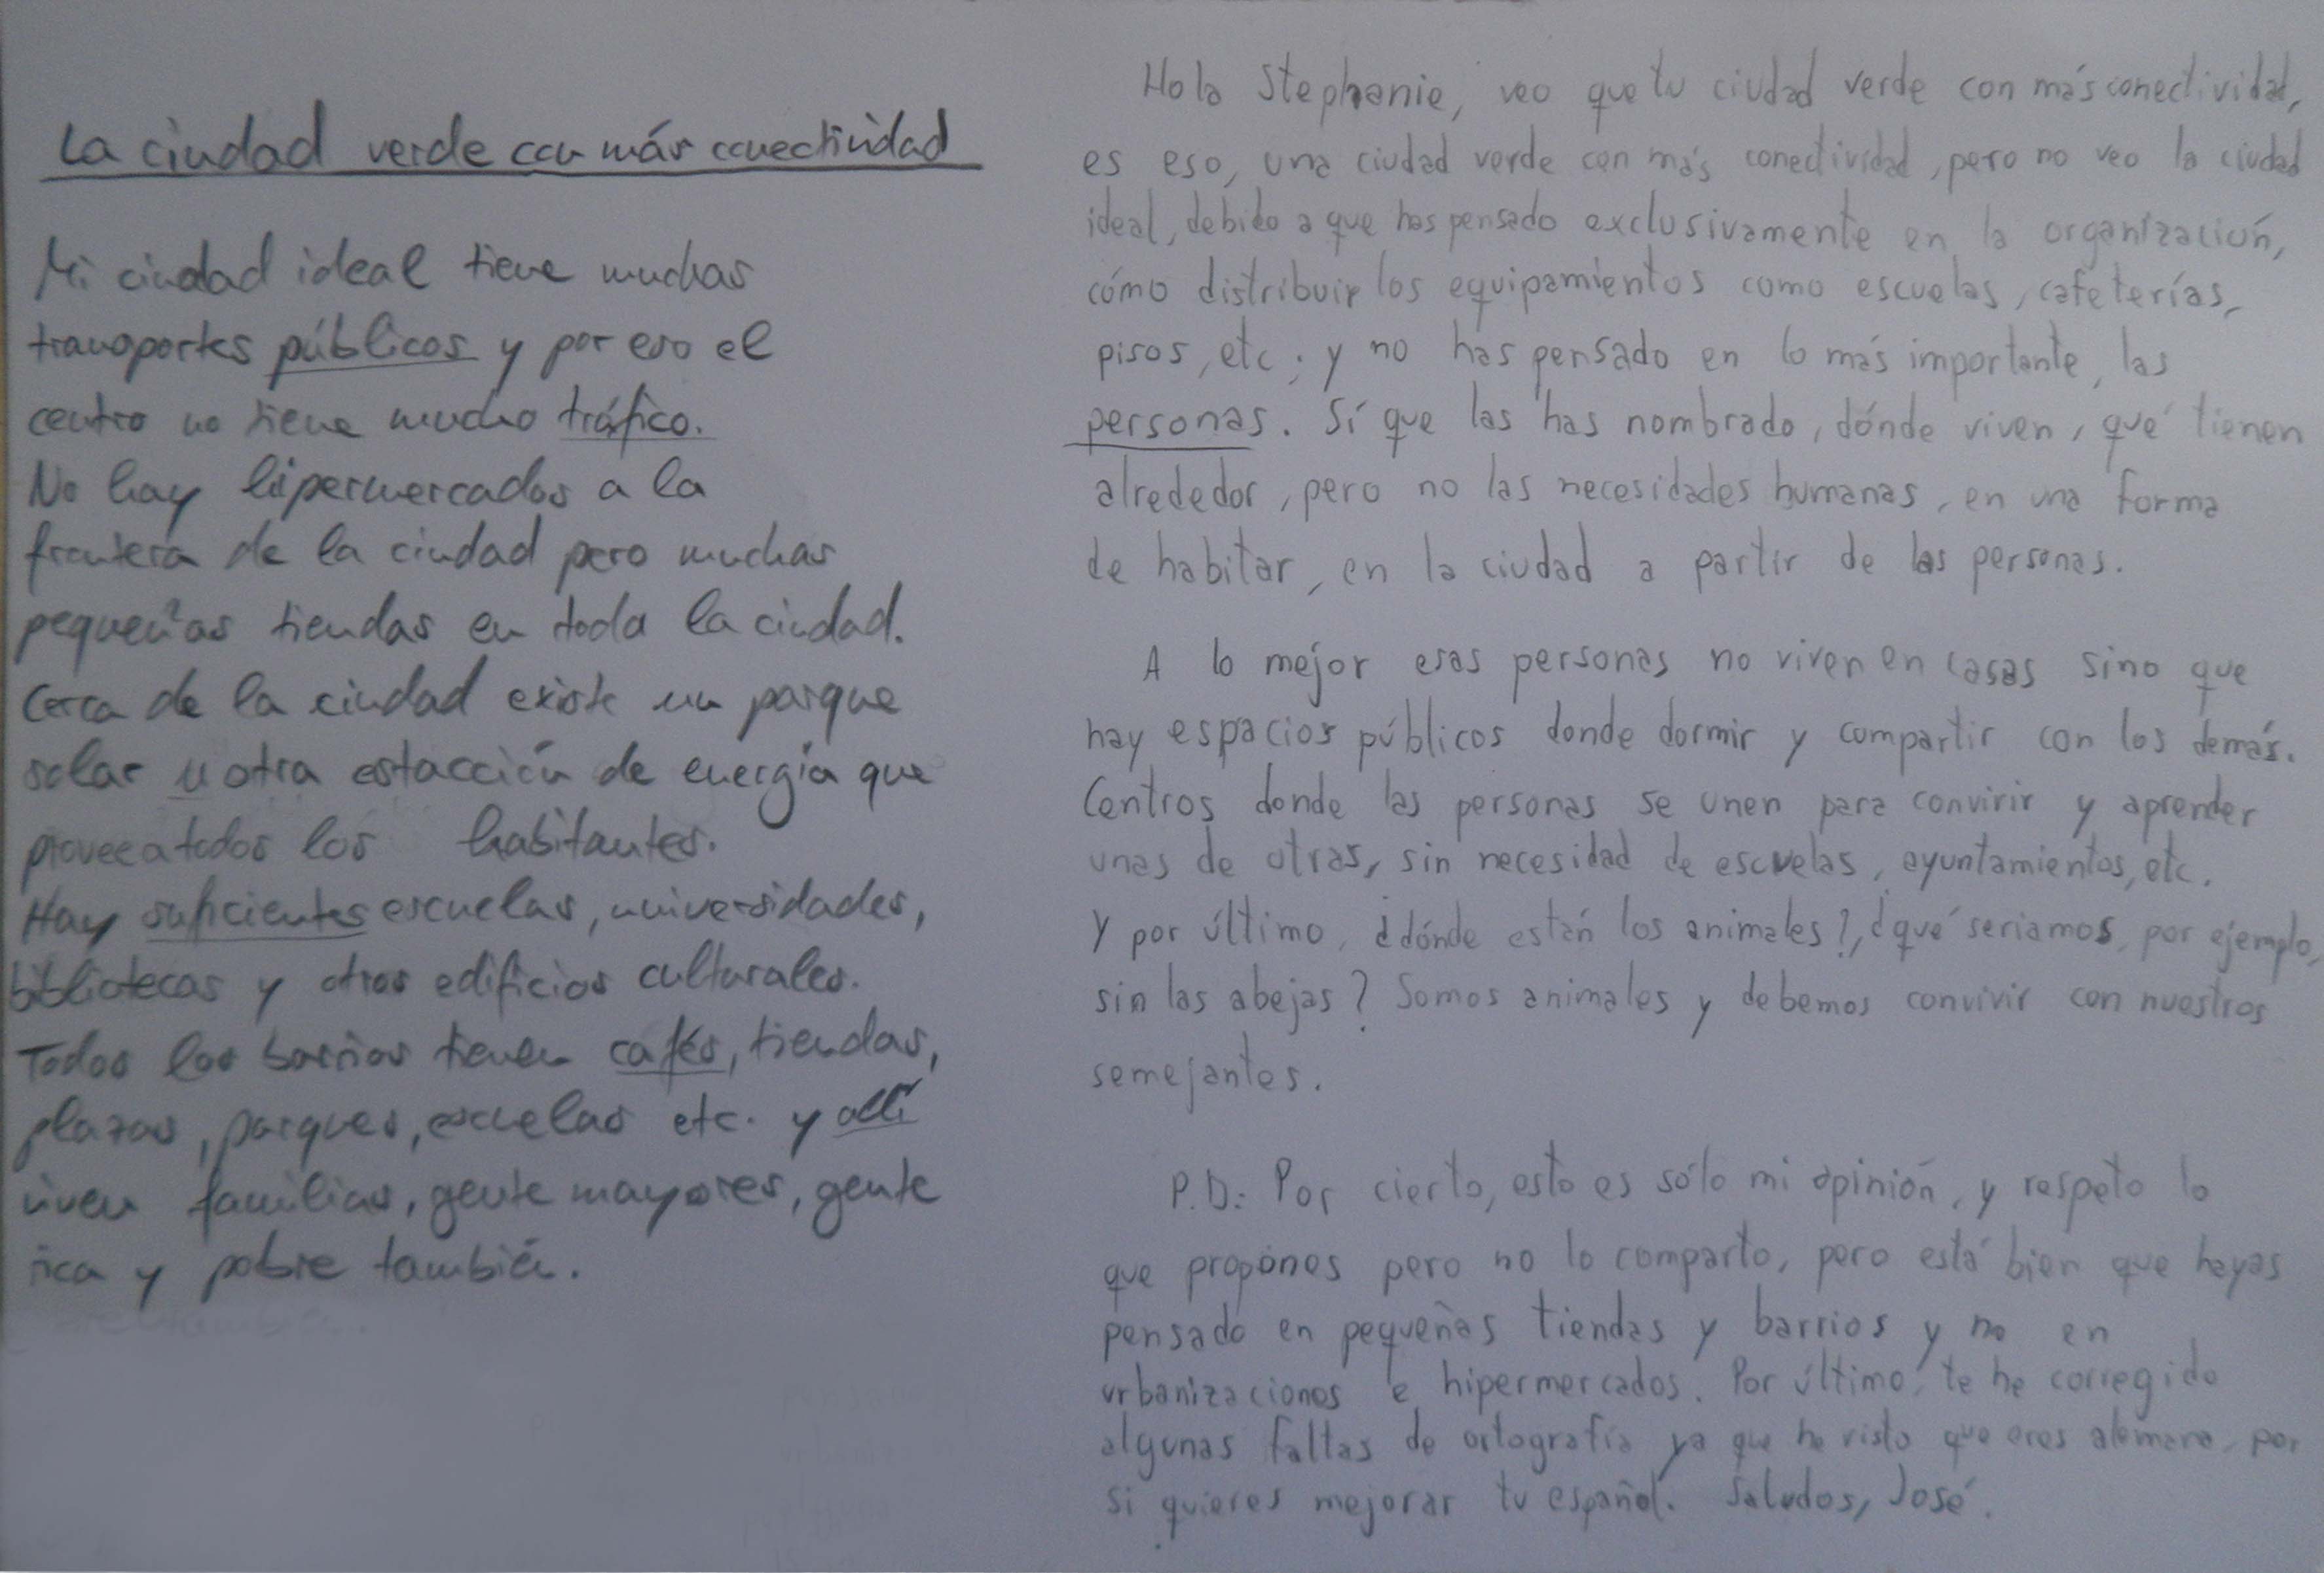 La ciudad verde con más conectividad
Mi ciudad ideal tiene muchas
transportes públicos y por eso el
centro no tiene mucho tráfico.
No hay hipermercados a la
frontera de la ciudad pero muchas
pequeñas tiendas en toda la ciudad.
Cerca de la ciudad existe un parque
solar u otra estacción de energía que
provee a todos los habitantes.
Hay suficientes escuelas, universidades,
bibliotecas y otros edificios culturales.
Todos los barrios tienen cafés, tiendas,
plazas, parques, escuelas etc. y allí
viven familias, gente mayores, gente
rica y pobre también.
Hola Stephanie, veo que tu ciudad verde con más conectividad,
es eso, una ciudad verde con más conectividad, pero no veo la ciudad
ideal, debido a que has pensado exclusivamente en la organización,
cómo distribuir los equipamientos como escuelas, cafeterías,
pisos, etc; y no has pensado en lo más importante, las
personas. Sí que las has nombrado, dónde viven, qué tienen
alrededor, pero no las necesidades humanas, en una forma
de habitar, en la ciudad a partir de las personas.
A lo mejor esas personas no viven en casas sino que
hay espacios públicos donde dormir y compartir con los demás.
Centros donde las personas se unen para convivir y aprender
unas de otras, sin necesidad de escuelas, ayuntamientos, etc.
Y por último, ¿dónde están los animales?, ¿qué seriamos, por ejemplo,
sin las abejas? Somos animales y debemos convivir con nuestros
semejantes.
P.D.: Por cierto, esto es sólo mi opinión, y respeto lo
que propones pero no lo comparto, pero está bien que hayas
pensado en pequeñas tiendas y barrios y no en
urbanizaciones e hipermercados. Por último, te he corregido
algunas faltas de ortografía ya que he visto que eres alemana, por
si quieres mejorar tu español. Saludos, José.